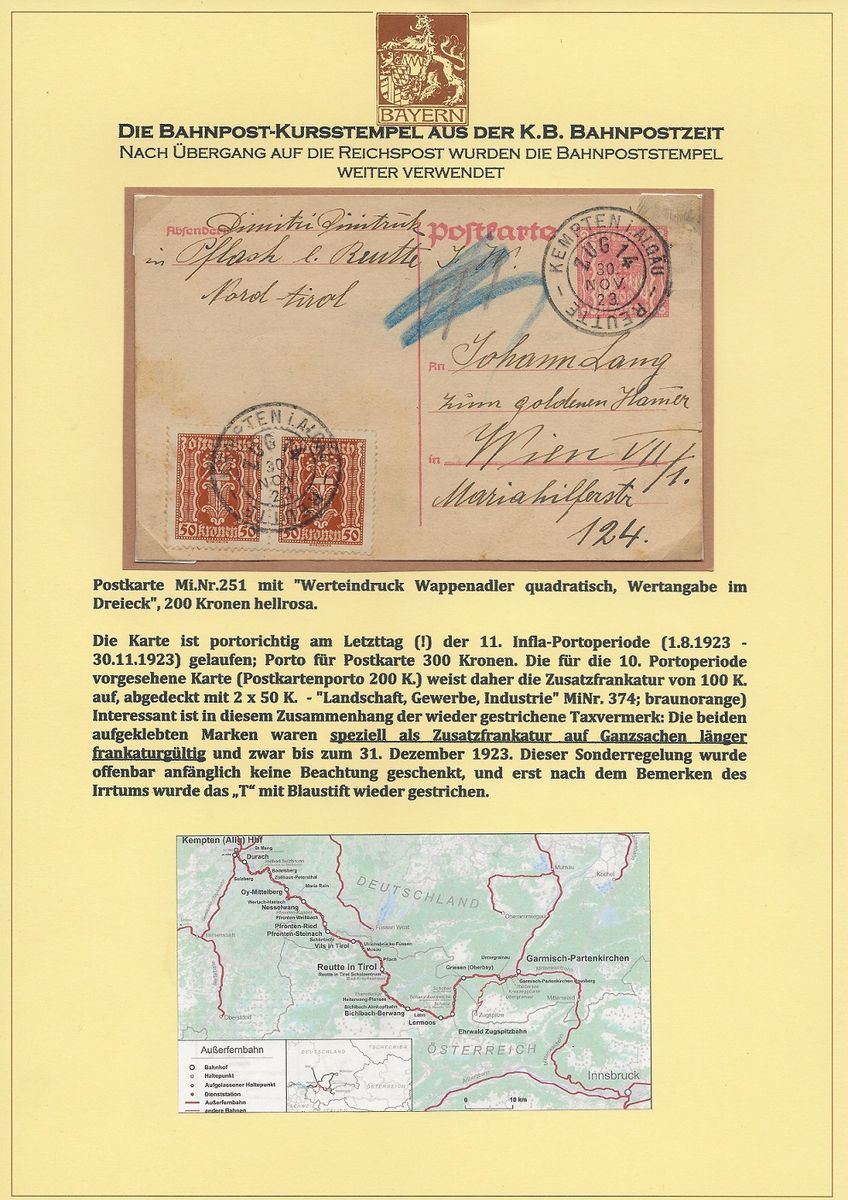 BAYERN
DIE BAHNPOST-KURSSTEMPEL AUS DER K.B. BAHNPOSTZEIT
NACH ÜBERGANG AUF DIE REICHSPOST WURDEN DIE BAHNPOSTSTEMPEL
WEITER VERWENDET
Absender: Dimitri Dimtruk
in Pflach b. Reutte
Nord Tirol
Postkarte
KEMPTEN i. ALGÄU
ZUG 14
30.
NOV.
23
- REUTTE -
An Johann Lang
zum goldenen Hamer
in Wien VII/1.
Mariahilferstr
124.
KEMPTEN i. ALGÄU
ZUG 14
30.
NOV.
23
REUTTE
50 kronen 50
50 kronen 50
Postkarte Mi.Nr.251 mit "Werteindruck Wappenadler quadratisch, Wertangabe im
Dreieck", 200 Kronen hellrosa.
Die Karte ist portorichtig am Letzttag (!) der 11. Infla-Portoperiode (1.8.1923 -
30.11.1923) gelaufen; Porto für Postkarte 300 Kronen. Die für die 10. Portoperiode
vorgesehene Karte (Postkartenporto 200 K.) weist daher die Zusatzfrankatur von 100 K.
auf, abgedeckt mit 2 x 50 K. - "Landschaft, Gewerbe, Industrie" MiNr. 374; braunorange)
Interessant ist in diesem Zusammenhang der wieder gestrichene Taxvermerk: Die beiden
aufgeklebten Marken waren speziell als Zusatzfrankatur auf Ganzsachen länger
frankaturgültig und zwar bis zum 31. Dezember 1923. Dieser Sonderregelung wurde
offenbar anfänglich keine Beachtung geschenkt, und erst nach dem Bemerken des
Irrtums wurde das „T“ mit Blaustift wieder gestrichen.
Kempten (Allg) Hbf
St Mang
Durach
Sulzberg
Bodelsberg
Zollhaus-Petersthal
Oy-Mittelberg
Maria Rain
Wertach-Haslach
Nesselwang
Pfronten-Weißbach
Pfronten-Ried
Pfronten-Steinach
Schönbichl
Vils in Tirol
Ulrichsbrücke-Füssen
Musau
Pflach
Füssen West
Reutte in Tirol
Reutte in Tirol Schulzentrum
Heiterwang-Plansee
Bichlbach-Almkopfbahn
Bichlbach-Berwang
Lähn
Lermoos
Ehrwald Zugspitzbahn
Griesen (Oberbay)
Untergrainau
Garmisch-Partenkirchen
Zugspitze
Mittenwald
Murnau
Kochel
Oberammergau
Oberstdorf
DEUTSCHLAND
ÖSTERREICH
Innsbruck
0 10 km
Außerfernbahn
Bahnhof
Haltepunkt
Aufgelassener Haltepunkt
Dienststation
Außerfernbahn
andere Bahnen
DEUTSCHLAND
TSCHECHIEN
ÖSTERREICH